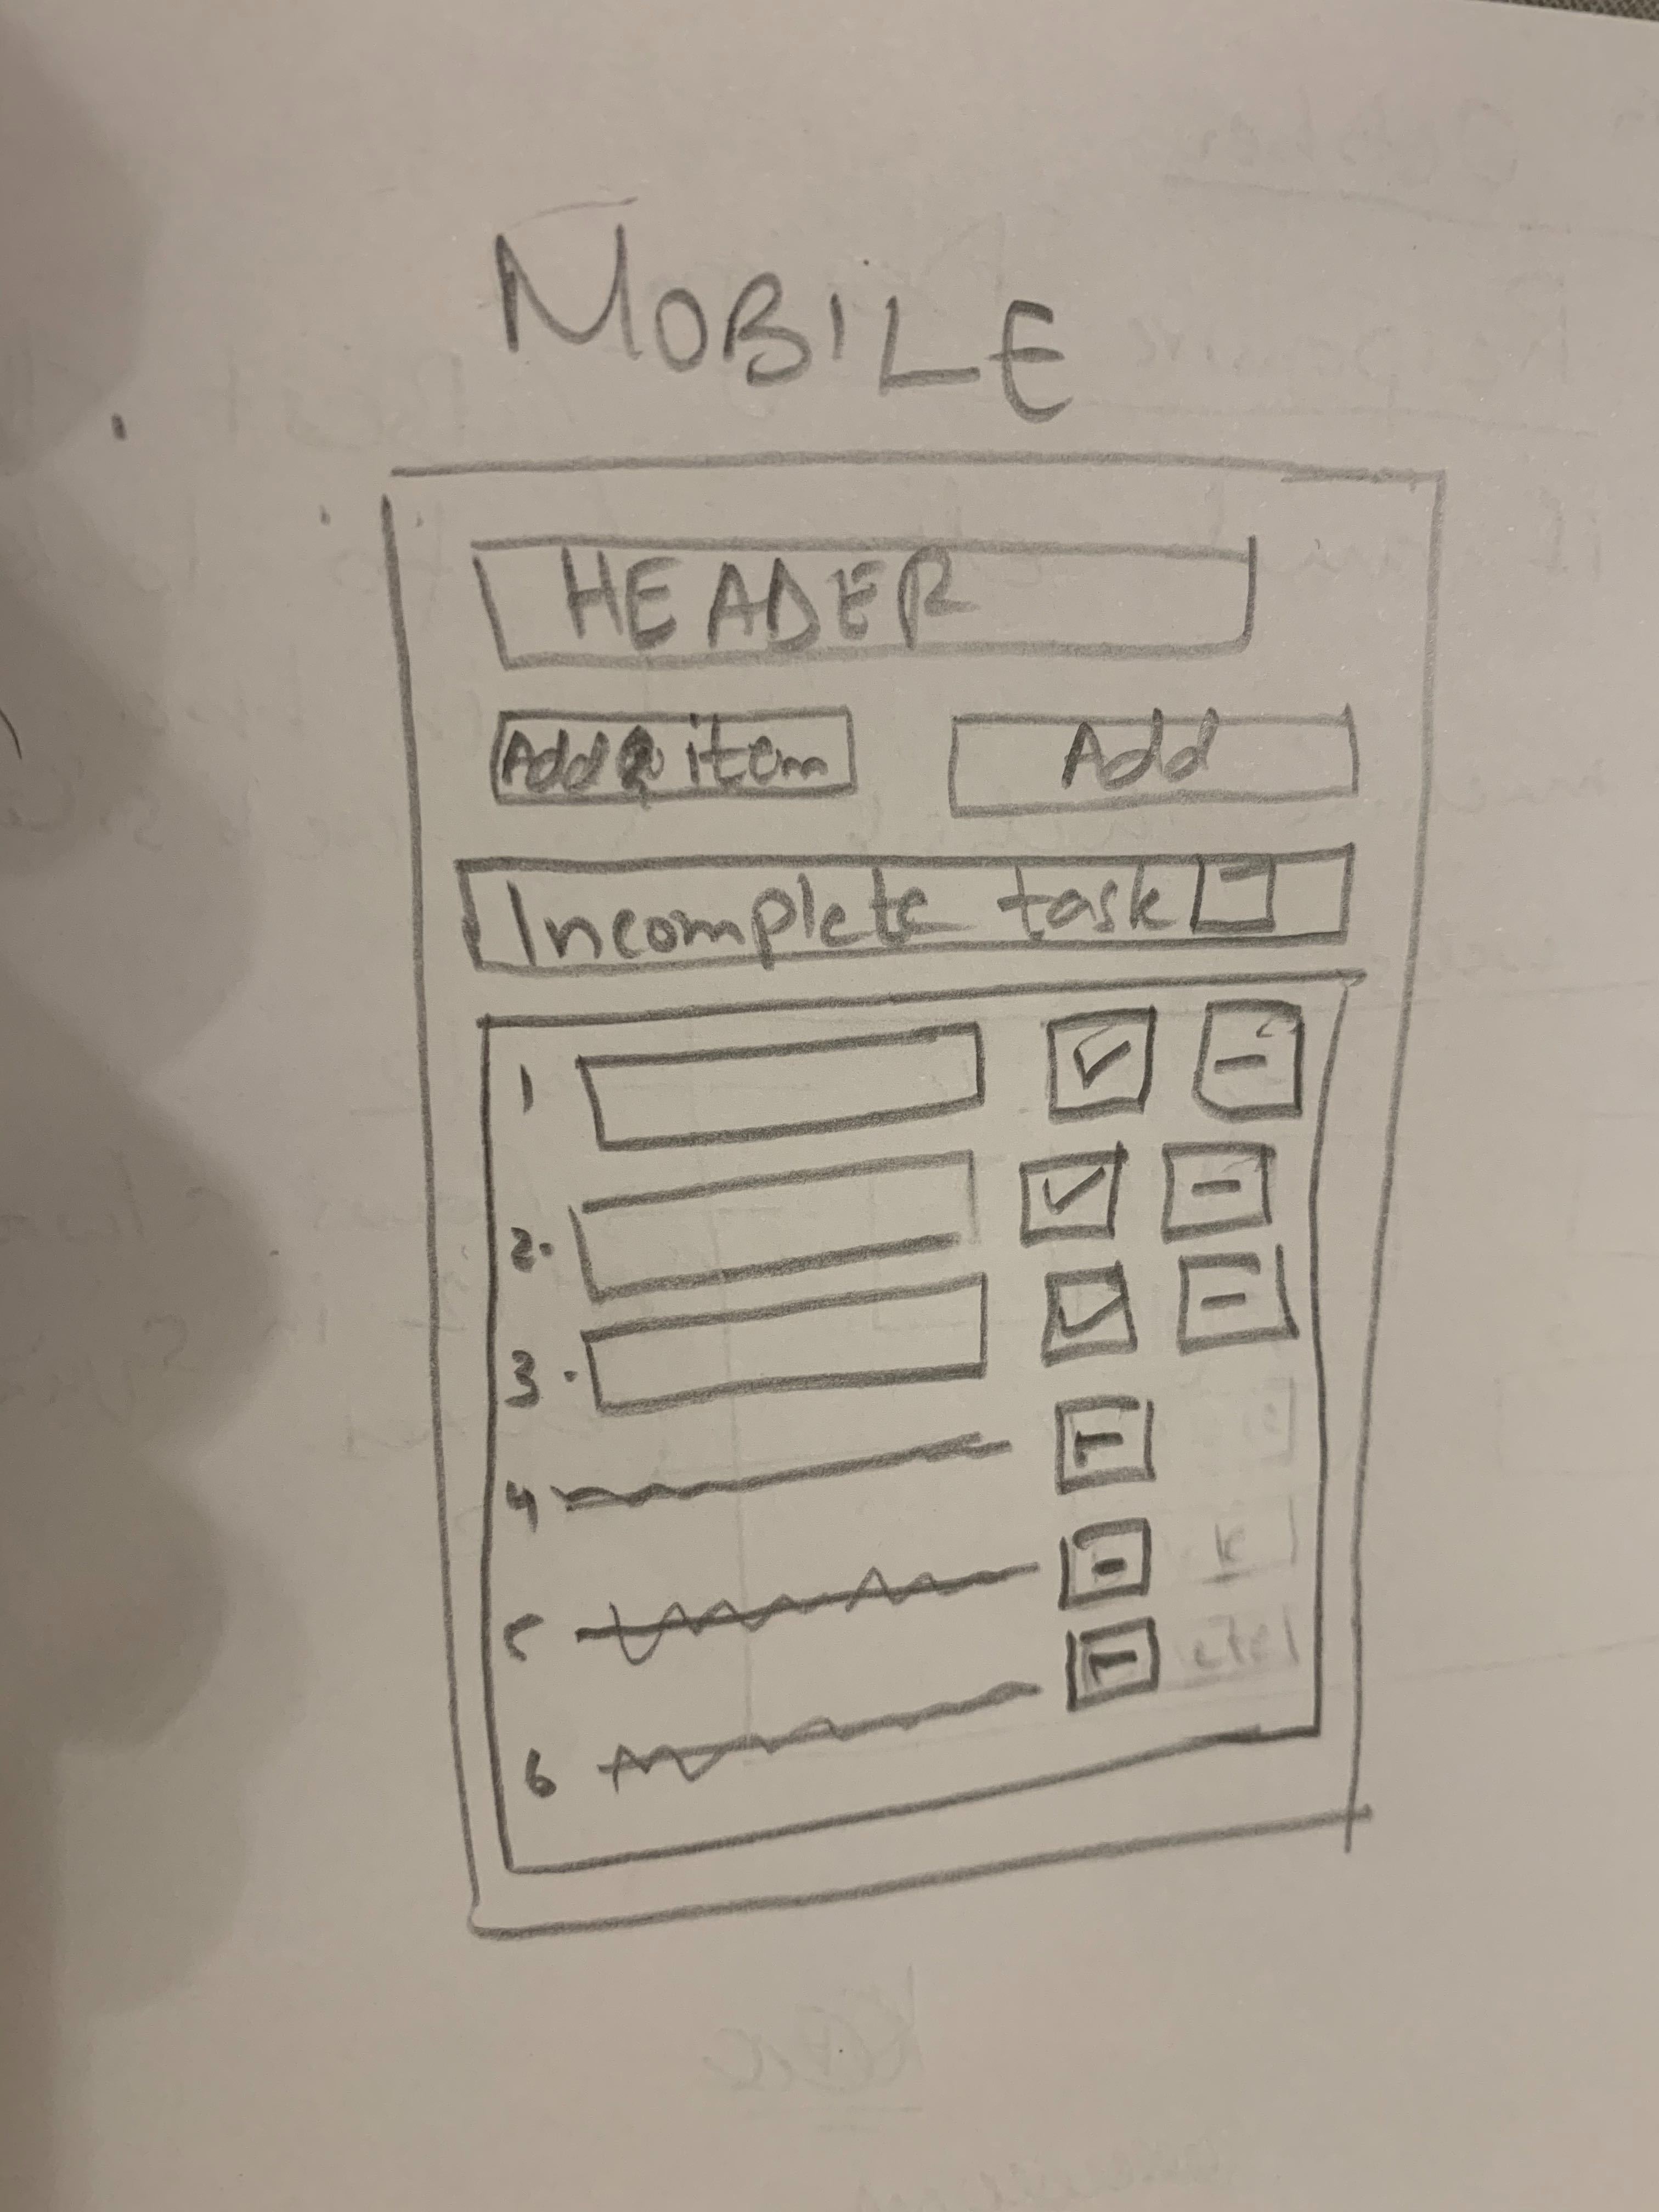 MOBILE
HEADER
Add item Add
Incomplete task
1
2.
3.
4
5
6